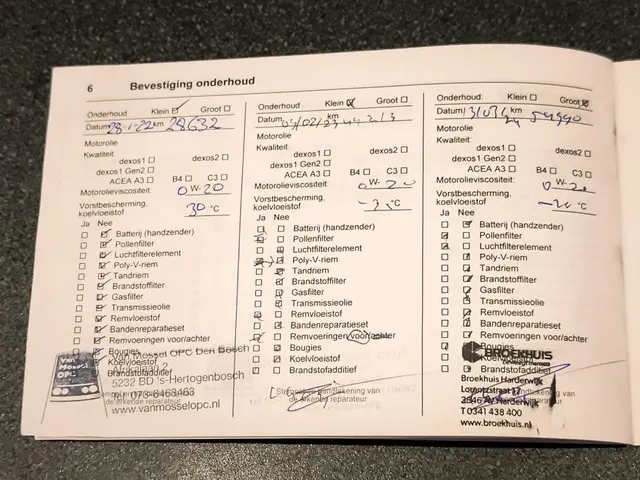 6 Bevestiging onderhoud
Onderhoud Klein Groot
Datum 28-1-22 km 28632
Motorolie
Kwaliteit
dexos1 dexos2
dexos1 Gen2
ACEA A3 B4 C3
Motorolieviscositeit 0 W-20
Vorstbescherming,
koelvloeistof 30 °C
Ja Nee
Batterij (handzender)
Pollenfilter
Luchtfilterelement
Poly-V-riem
Tandriem
Brandstoffilter
Gasfilter
Transmissieolie
Remvloeistof
Bandenreparatieset
Remvoeringen voor/achter
Bougies
Koelvloeistof
Brandstofadditief
Van Mossel OPC Den Bosch
5232 BD 's-Hertogenbosch
Tel. 073-6463463
www.vanmosselopc.nl
Onderhoud Klein Groot
Datum km
Motorolie
Kwaliteit
dexos1 dexos2
dexos1 Gen2
ACEA A3 B4 C3
Motorolieviscositeit 0 W-20
Vorstbescherming,
koelvloeistof °C
Ja Nee
Batterij (handzender)
Pollenfilter
Luchtfilterelement
Poly-V-riem
Tandriem
Brandstoffilter
Gasfilter
Transmissieolie
Remvloeistof
Bandenreparatieset
Remvoeringen voor/achter
Bougies
Koelvloeistof
Brandstofadditief
Stempel en handtekening van
de erkende reparateur
Onderhoud Klein Groot
Datum km
Motorolie
Kwaliteit
dexos1 dexos2
dexos1 Gen2
ACEA A3 B4 C3
Motorolieviscositeit 0 W-20
Vorstbescherming,
koelvloeistof °C
Ja Nee
Batterij (handzender)
Pollenfilter
Luchtfilterelement
Poly-V-riem
Tandriem
Brandstoffilter
Gasfilter
Transmissieolie
Remvloeistof
Bandenreparatieset
Remvoeringen voor/achter
Bougies
BROEKHUIS
Brandstofadditief
Broekhuis Harderwijk
Lorentzstraat
Harderwijk
T 0341 438 400
www.broekhuis.nl